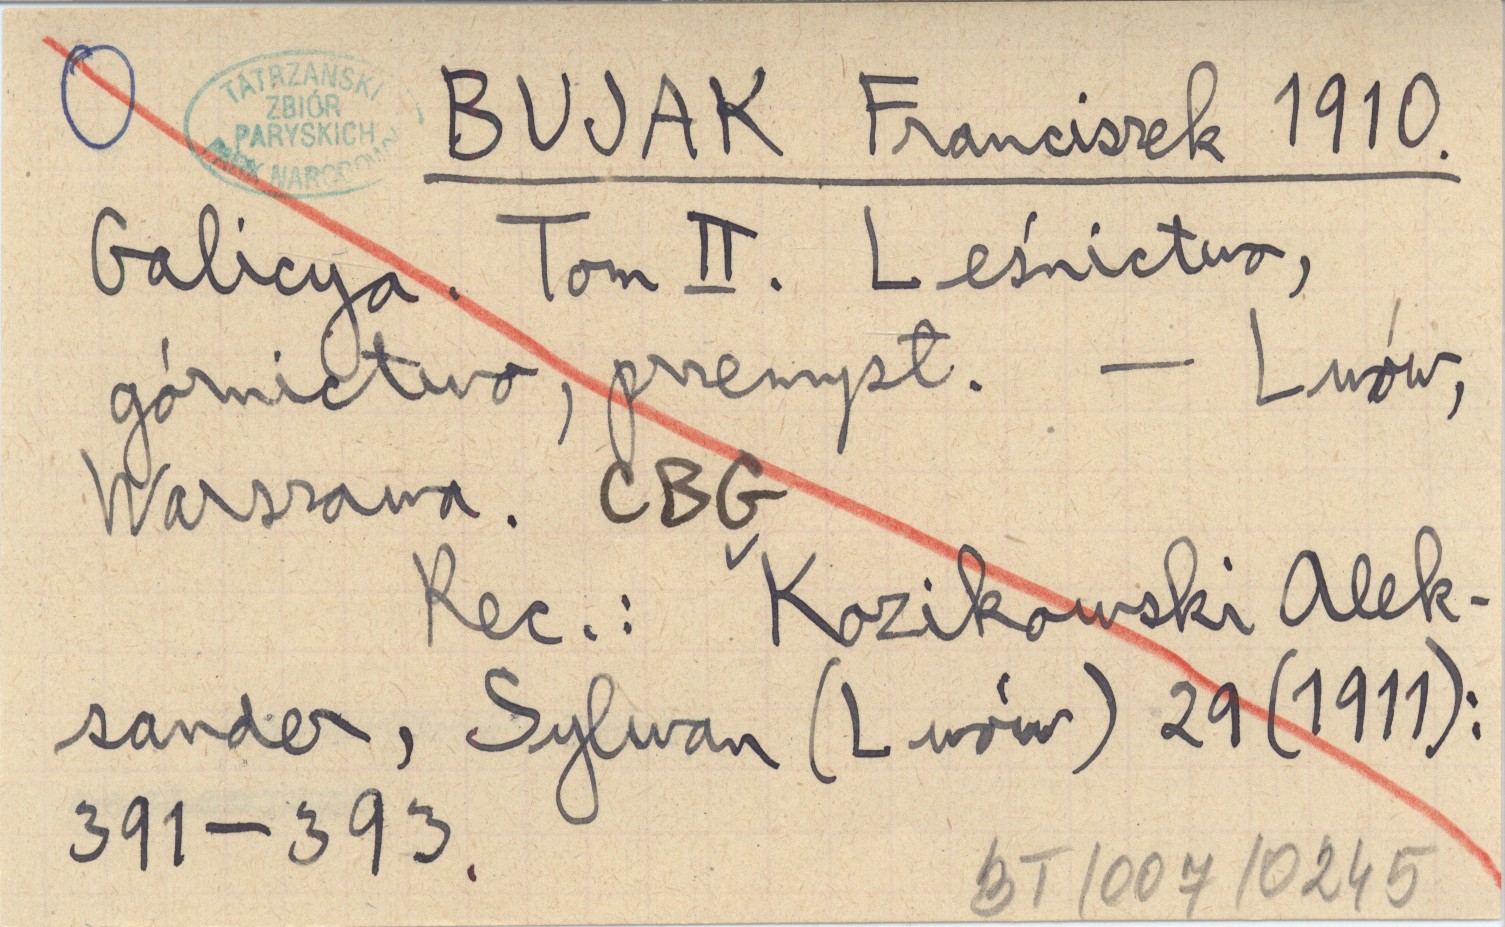 TATRZAŃSKI
ZBIÓR
PARYSKICH
PARK NARODOWY
BUJAK Franciszek 1910.
Galicya. Tom II. Leśnictwo,
górnictwo, przemysł. — Lwów,
Warszawa. CBG
Rec.: Kozikowski Alek-
sander, Sylwan (Lwów) 29 (1911):
391–393.
BT/007/0245